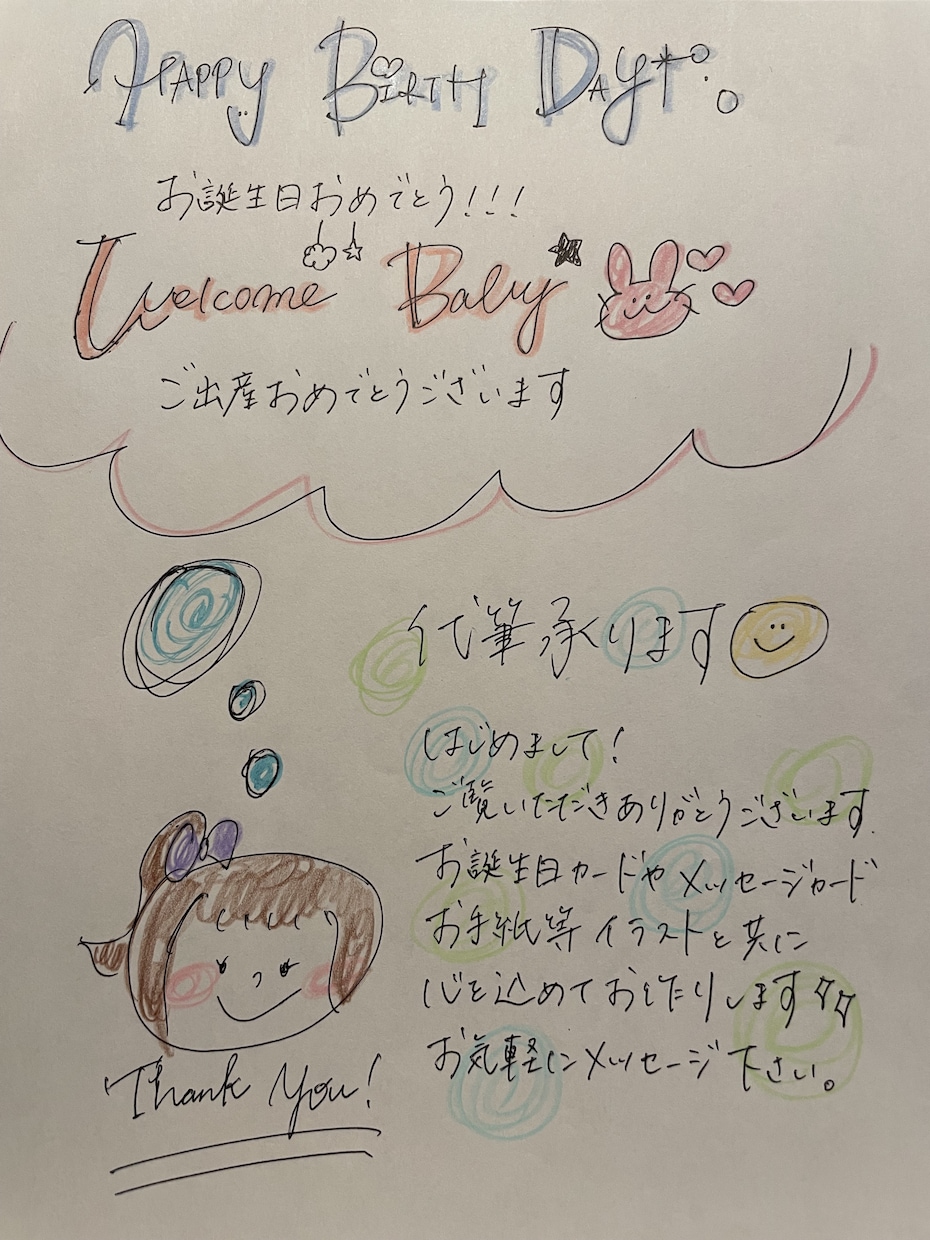 HAPPY BIRTH DAY
お誕生日おめでとう!!!
Welcome Baby
ご出産おめでとうございます
代筆承ります
はじめまして!
ご覧いただきありがとうございます.
お誕生日カードやメッセージカード
お手紙等イラストと共に
心を込めてお作りします
お気軽にメッセージ下さい。
Thank You!